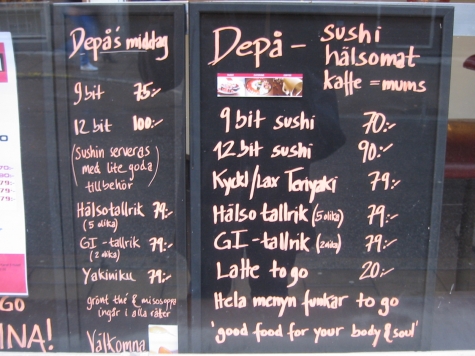 Depå's middag
9 bit 75:-
12 bit 100:-
(Sushin serveras
med lite goda
tillbehör)
Hälsotallrik 79:-
(5 olika)
GI-tallrik 79:-
(2 olika)
Yakiniku 79:-
grönt thé & misosoppa
ingår i alla rätter
Välkomna
Depå - sushi
hälsomat
kaffe = mums
9 bit sushi 70:-
12 bit sushi 90:-
Kyckl/Lax Teriyaki 79:-
Hälsotallrik (5 olika) 79:-
GI-tallrik (2 olika) 79:-
Latte to go 20:-
Hela menyn funkar to go
'good food for your body & soul'
GO
NA!